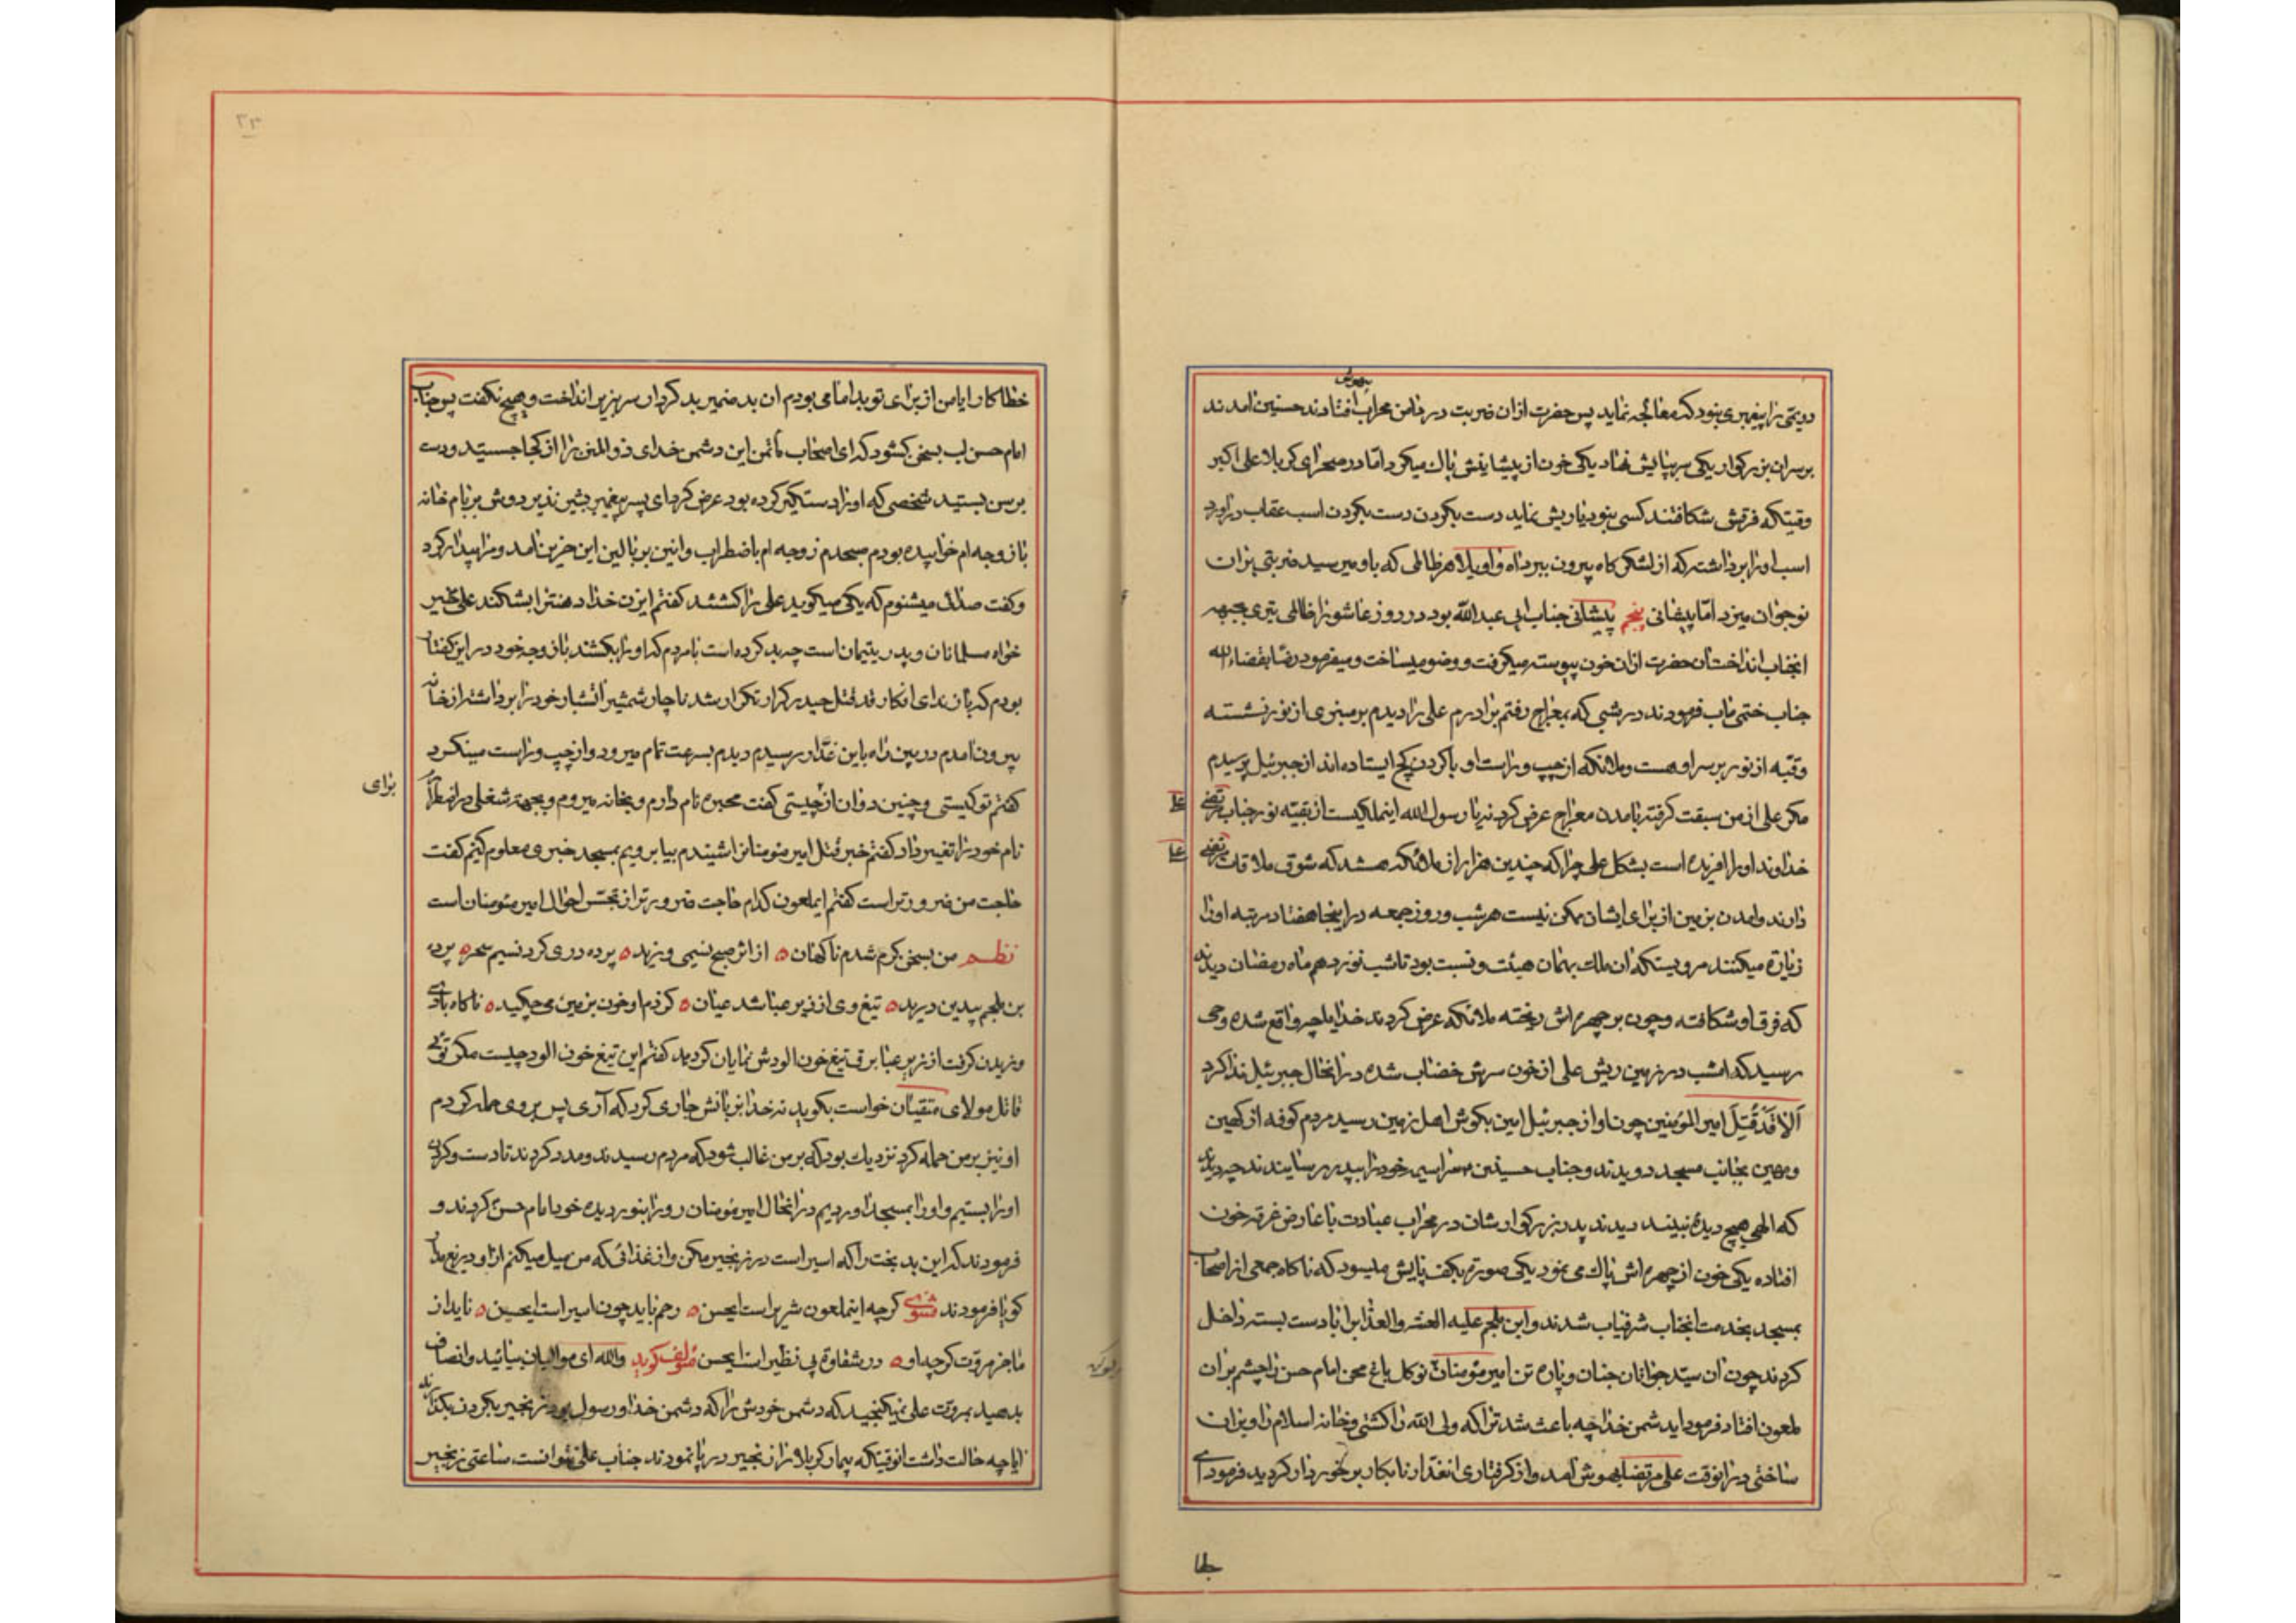 رویتی را پیغمبری بنود که معالجه نماید پس حضرت ازان ضربت در دامن محراب افتادند حسنین آمدند
بر سران بزرکوار یکی سر بپایش نهاد یکی خون از پیشانیش پاك میکرد امّا در صحرای کربلا علی اکبر
وقتیکه فرقش شکافتند کسی بنود یاریش نماید دست بکردن اسب عقاب دراورد
اسب اورا برداشته که از لشکرکاه بیرون ببرد اه واویلا هر ظالمی که باو میرسید ضربتی بران
نوجوان میزد امّا پیشانی پنجم پیشانی جناب ابی عبدالله بود در روز عاشورا ظالمی تیری بجبهه
انجناب انداخت انحضرت ازان خون پیوسته میکرفت و وضو میساخت و میفرمود رضا بقضاء الله
جناب ختمی ماب فرمودند در شبی که بمعراج رفتم برادرم علی را دیدم بر منبری از نور نشسته
وقبّه از نور بر سر او هست وملائکه از چپ و راست او با کردن کج ایستاده اند از جبرئیل پرسیدم
مکر علی از من سبقت کرفته بامدن معراج عرض کرد نه یا رسول الله اینملکیست از بقیّه نور جناب مرتضی
خداوند اورا افریده است بشکل علی چرا که چندین هزار از ملائکه هستند که شوق ملاقات مرتضی
دارند وامدن بزمین از برای ایشان ممکن نیست هر شب وروز جمعه در اینجا هفتاد مرتبه اورا
زیارة میکنند مرویستکه ان ملك بهمان هیئت ونسبت بود تا شب نوزدهم ماه رمضان دیدند
که فرق او شکافته وخون بر چهره اش ریخته ملائکه عرض کردند خدایا چه واقع شده وحی
رسید که امشب در زمین ریش علی از خون سرش خضاب شده در انحال جبرئیل ندا کرد
اَلا قَدْ قُتِلَ امیر المؤمنین چون اواز جبرئیل امین بکوش اهل زمین رسید مردم کوفه از کهین
ومهین بجانب مسجد دویدند وجناب حسنین سراسیمه خودرا بپدر رسانیدند چه دیدند
که الهی هیچ دیدهٔ نبیند دیدند پدر بزرکوارشان در محراب عبادت با عارض غرقه خون
افتاده یکی خون از چهره اش پاك می نمود یکی صورة بکف پایش میسود که ناکاه جمعی از اصحاب
بمسجد بخدمت انجناب شرفیاب شدند وابن ملجم علیه اللعنه والعذاب را با دست بسته داخل
کردند چون ان سیّد جوانان جنان و پاره تن امیر مؤمنان نوکل باغ محن امام حسن را چشم بران
ملعون افتاد فرمود ایدشمن خدا چه باعث شد ترا که ولی الله را کشتی وخانه اسلام را ویران
ساختی در انوقت علی مرتضا بهوش آمد واز کرفتاری انغدّار نابکار بر خوردار کردید فرمود ای
خطا
خطاکار ایا من از برای تو بد امامی بودم ان بد ضمیر بد کردار سر بزیر انداخت و هیچ نکفت پس جناب
امام حسن لب بسخن کشود که ای اصحاب مأتمن این دشمن خدای ذوالمنن را از کجا جستید ودست
برسن بستید شخصی که اورا دستکیر کرده بود عرض کرد ای پسر پیغمبر بشیر نذیر دوش بر بام خانه
با زوجه ام خوابیده بودم صبحدم زوجه ام با ضطراب وانین بر بالین این حزین آمد ومرا بیدار کرد
وکفت صدائی میشنوم که یکی میکوید علی را کشتند کفتم ایزن خدا دهنترا بشکند علی بخیر
خواه مسلمانان و پدر یتیمان است چه بد کرده است بامردم که اورا بکشند با زوجه خود در این کفتار
بودم که باز ندای انکار قد قتل حیدر کرار تکرار شد ناچار شمشیر اتشبار خودرا برداشته از خانه
بیرون آمدم در بین راه باین غدّار رسیدم دیدم بسرعت تمام میرود واز چپ وراست مینکرد
کفتم تو کیستی وچنین دوان از چیستی کفت محبره نام دارم و بخانه میروم وبجهة شغلی
برای
نام خودرا تغییر داد کفتم خبر قتل امیر مؤمنانرا شنیدم بیا برویم بمسجد خبری معلوم کنیم کفت
حاجت من ضرورتر است کفتم ایملعون کدام حاجت ضرورتر از تجسّس احوال امیر مؤمنان است
نظم من بسخن کرم شدم ناکهان ه از اثر صبح نسیمی وزید ه پرده دری کرد نسیم سحر ه پرده
بن ملجم بیدین درید ه تیغ وی از زیر عبا شد عیان ه کز دم او خون بزمین می چکید ه ناکاه بادی
وزیدن کرفت از زیر عبا برق تیغ خون الودش نمایان کردید کفتم این تیغ خون الود چیست مکر توئی
قاتل مولای متقیان خواست بکوید نه خدا بزبانش جاری کرد که آری پس بروی حمله کردم
او نیز بر من حمله کرد نزدیك بود که بر من غالب شود که مردم رسیدند ومدد کردند تا دست وکردن
اورا بستیم واورا بمسجد اوردیم در انحال امیر مؤمنان رو را بنور دیده خود امام حسن کردند و
فرمودند که این بد بخت را که اسیر است در زنجیر مکن واز غذائی که من میل میکنم از او دریغ مدار
کویا فرمودند مثنوی کرچه اینملعون شریر است ایحسن ه رحم باید چون اسیر است ایحسن ه ناید از
ما جز مروّت کرچه او ه در شقاوة بی نظیر است ایحسن مؤلف کوید والله ای موالیان بیائید وانصاف
بدهید بمروّت علی نمیکنجید که دشمن خودش را که دشمن خدا ورسول بود زنجیر بکردن بکذارند
ایا چه حالت داشت انوقتیکه بیمار کربلا را زنجیر در پا نمودند جناب علی نتوانست ساعتی زنجیر